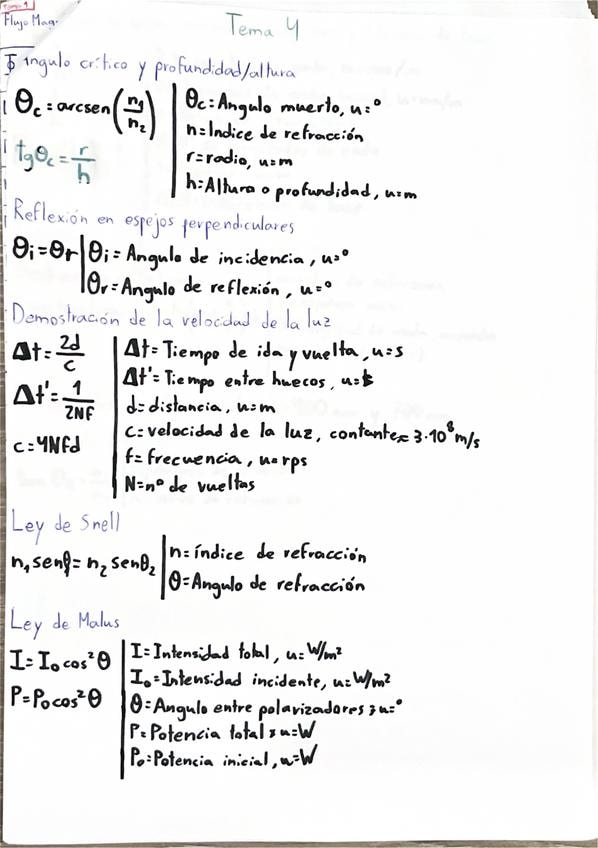 Tema 1
Flujo Mag
Tema 4
Ángulo crítico y profundidad/altura
θc = arcsen(n1/n2)
tgθc = r/h
θc: Angulo muerto, u=°
n=Indice de refracción
r=radio, u=m
h: Altura o profundidad, u=m
Reflexión en espejos perpendiculares
θi=θr
θi= Angulo de incidencia, u=°
θr= Angulo de reflexión, u=°
Demostración de la velocidad de la luz
Δt=2d/c
Δt'=1/2NF
c=4NFd
Δt= Tiempo de ida y vuelta, u=s
Δt'= Tiempo entre huecos, u=s
d= distancia, u=m
c= velocidad de la luz, contante≈ 3·10⁸ m/s
f= frecuencia, u=rps
N=nº de vueltas
Ley de Snell
n1senθ= n2senθ2
n= índice de refracción
θ=Angulo de refracción
Ley de Malus
I= I0cos²θ
P=P0cos²θ
I=Intensidad total, u=W/m²
I0=Intensidad incidente, u=W/m²
θ=Angulo entre polarizadores, u=°
P=Potencia total, u=W
P0=Potencia inicial, u=W